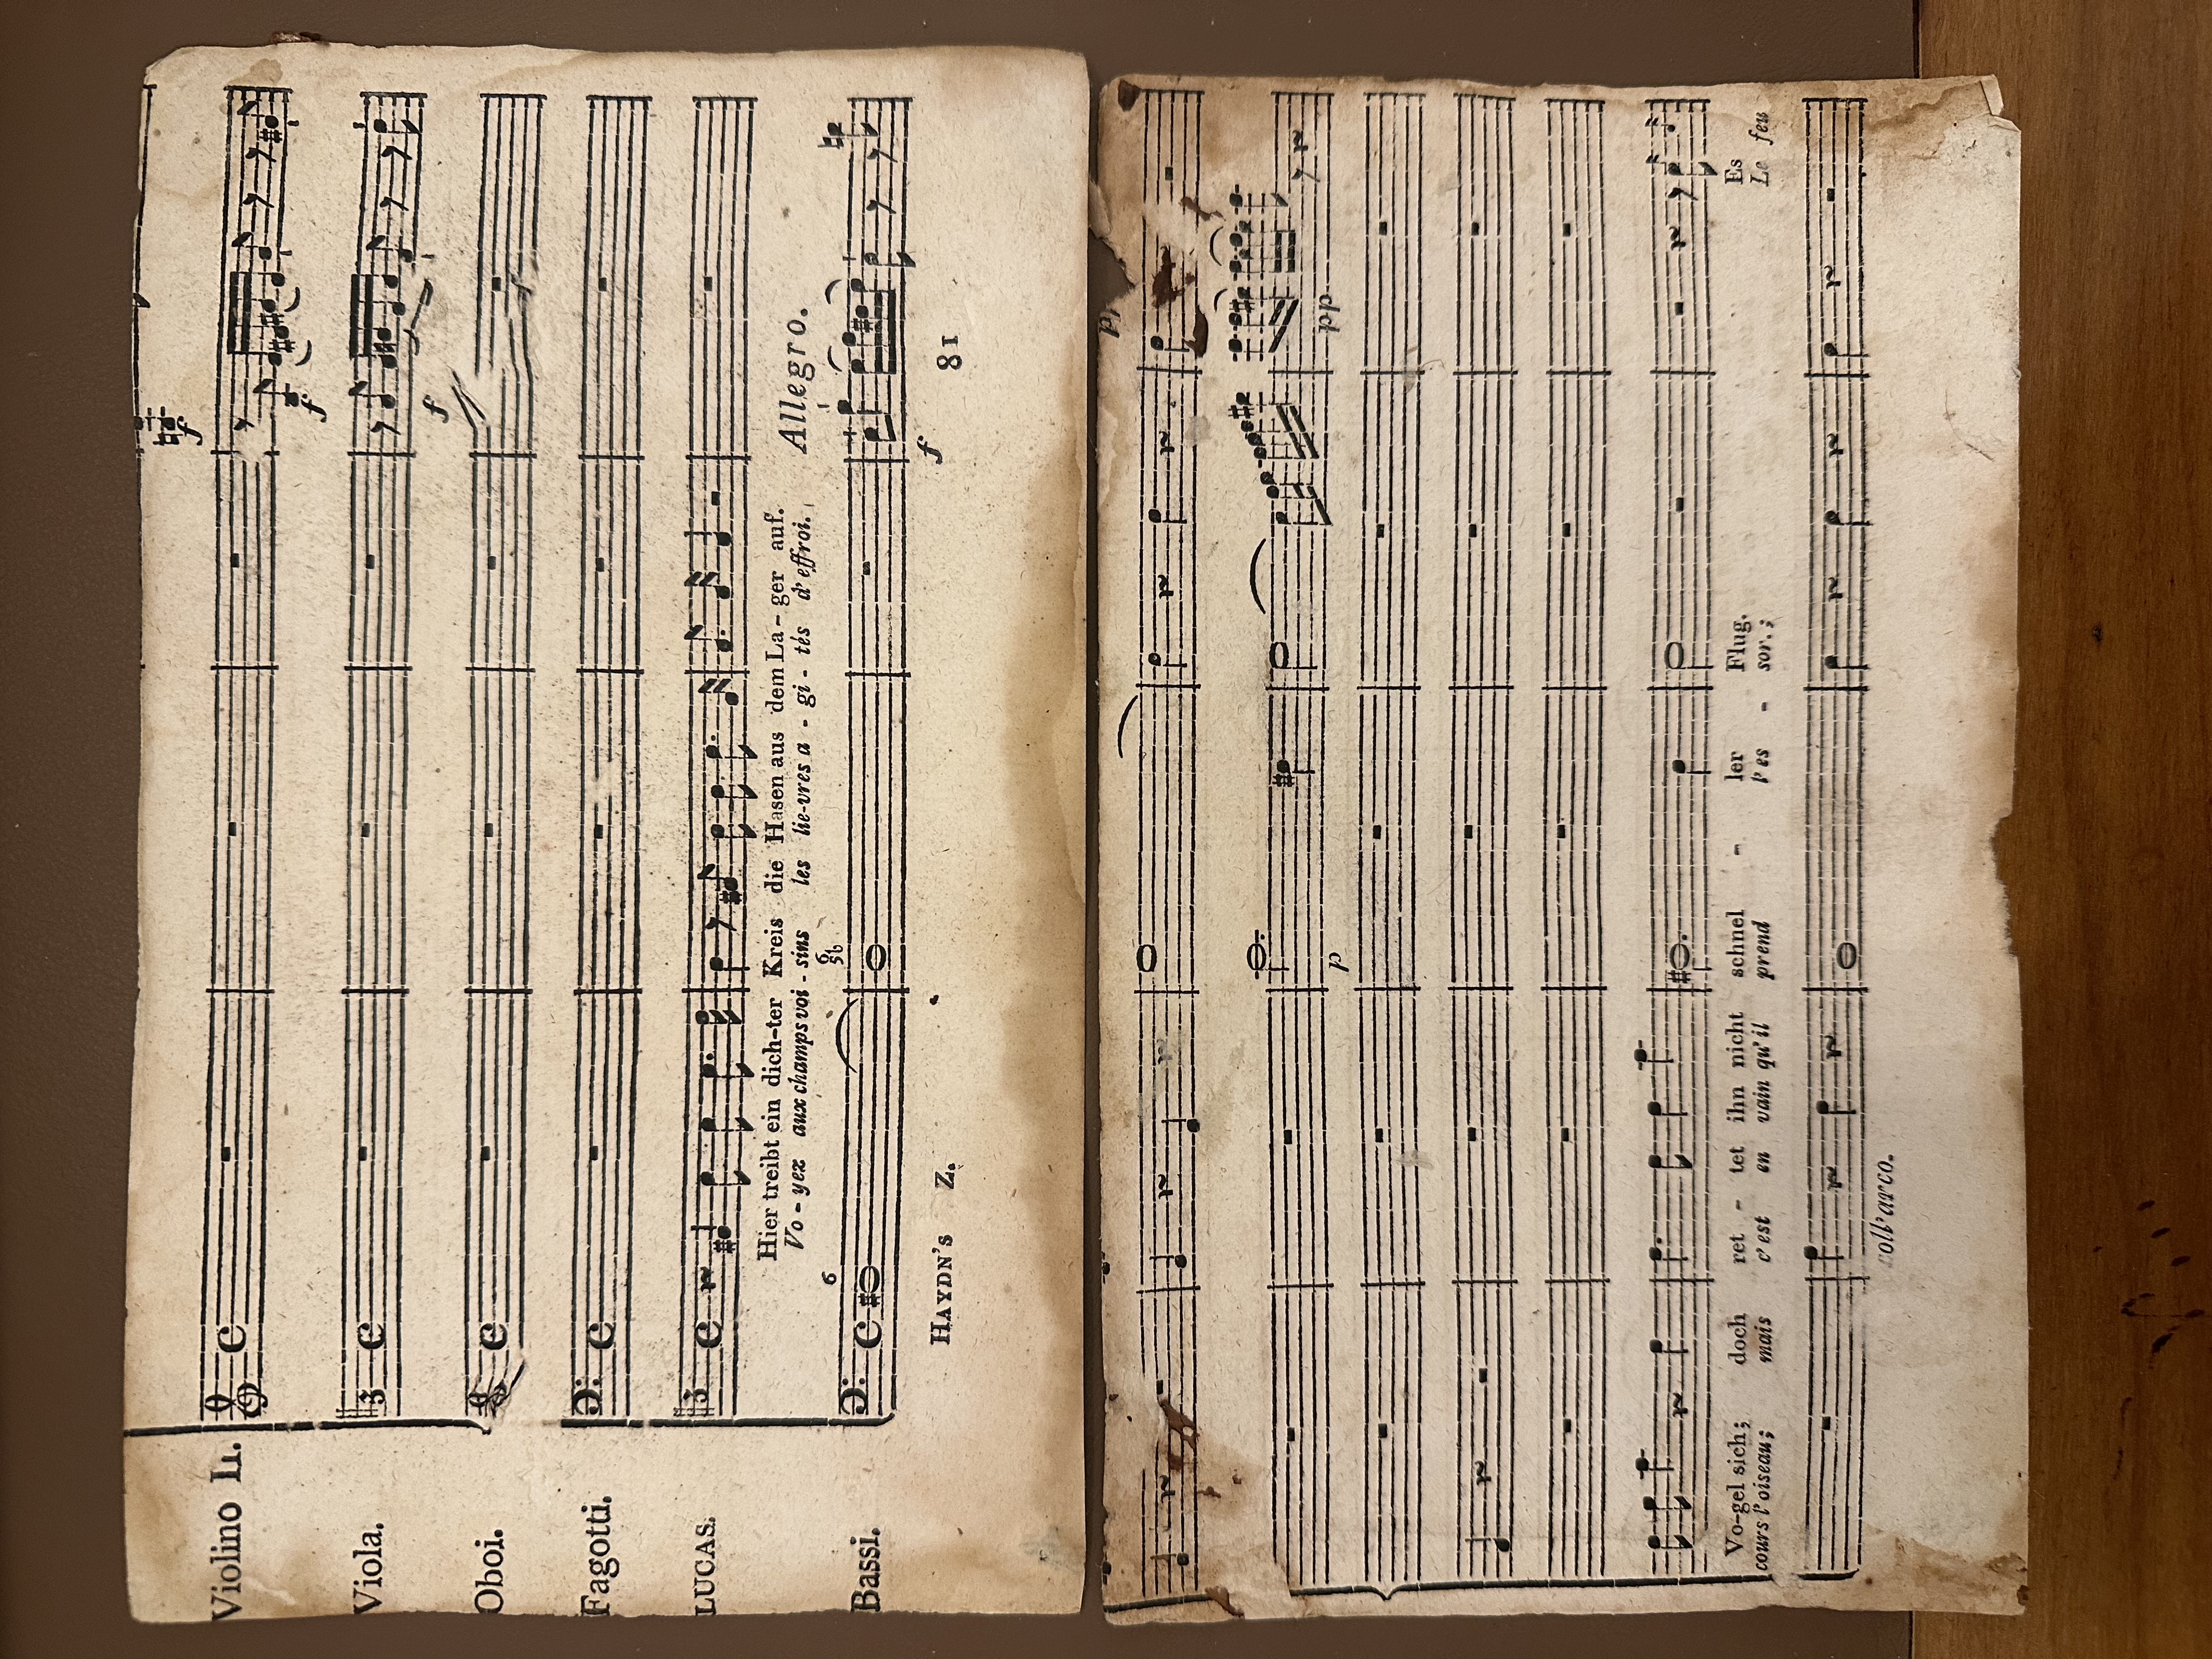 Violino II.
f
Viola.
f
Oboi.
Fagotti.
LUCAS.
Hier treibt ein dich-ter Kreis die Hasen aus dem La-ger auf.
Vo-yez aux champs voi-sins les lie-vres a-gi-tés d'effroi.
Allegro.
6
6
5♮
Bassi.
f
HAYDN'S Z.
81
p
pp
Vo-gel sich; doch ret-tet ihn nicht schnel-ler Flug. Es
cours l'oiseau; mais c'est en vain qu'il prend l'es-sor.; Le feu
coll'arco.